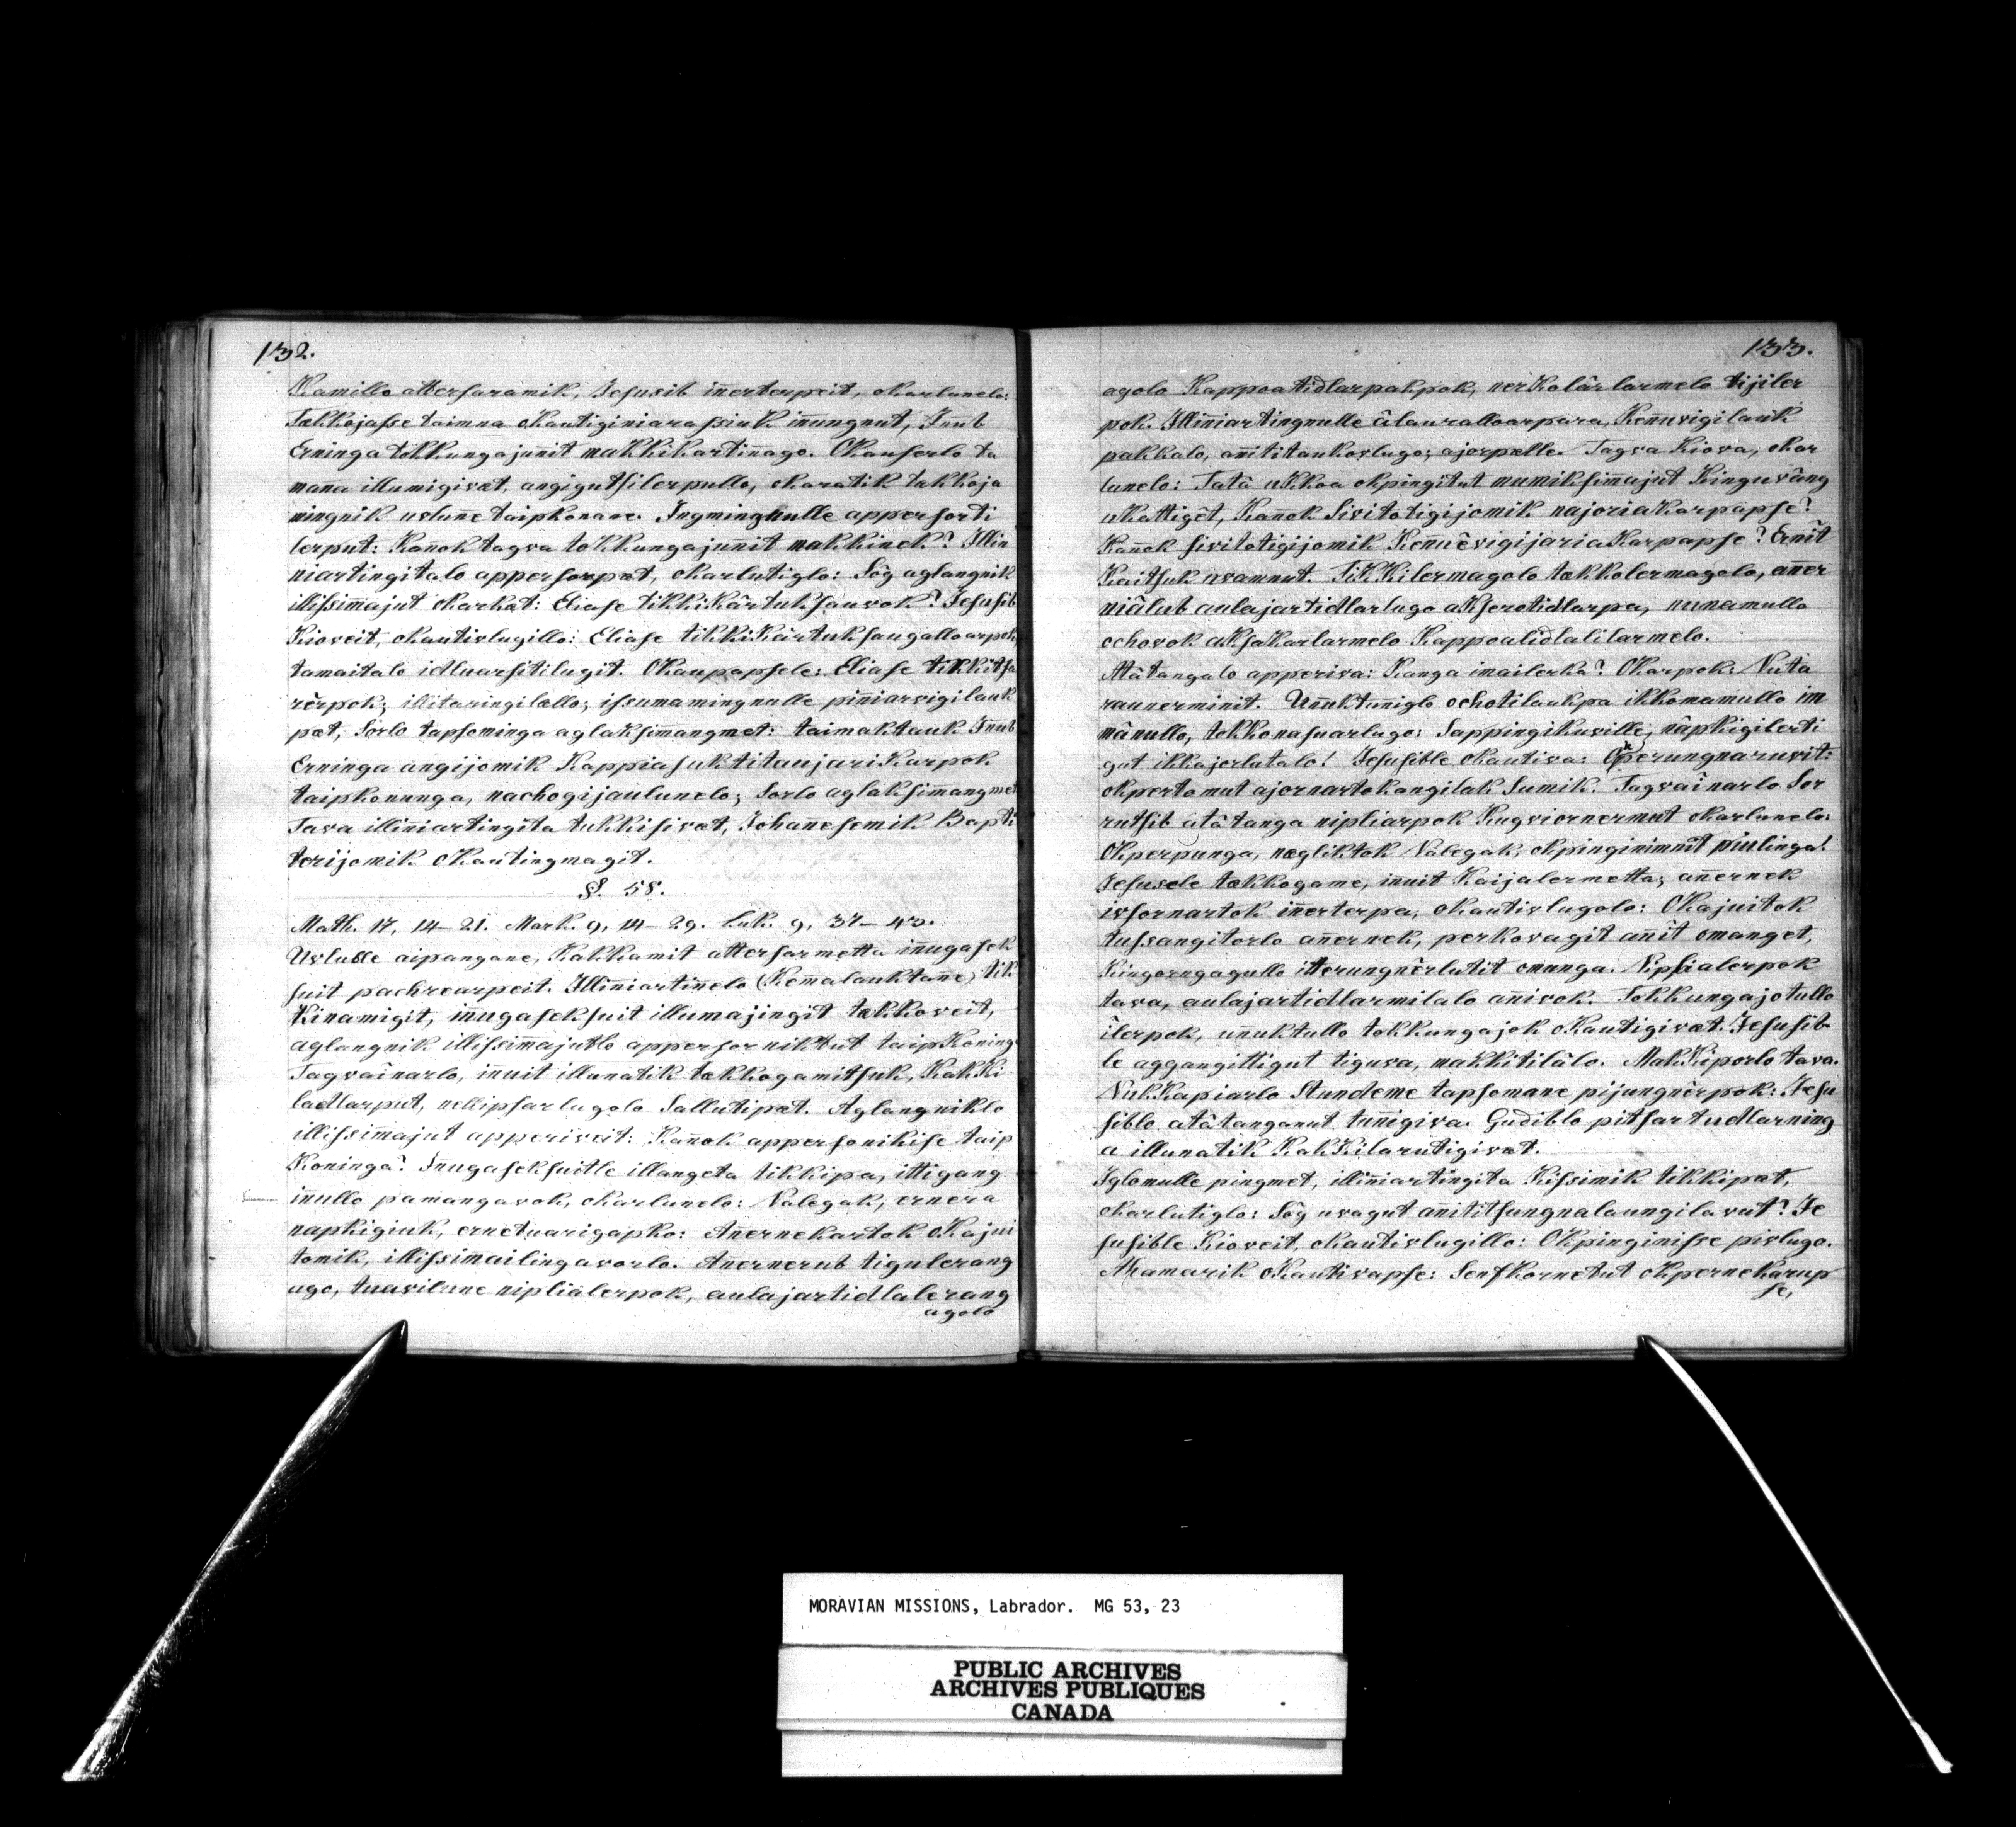 132.
Kamillo attersaramik, Jesusib innerterpeit, okarlunelo:
Takkojasse taimna okautiginiarassiuk innungnut, Innub
Erninga tokkungajunnit makkikartinnago. Okauserlo ta
manna illumigivæt, angigutsilerpullo, okaratik tukkoja
ningnik uvlunne taipkonane. Ingmingnulle appersorti
lerput: Kannok tagva tokkungajunnit makkinek? Illin
niartingitalo appersorpæt, okarlutiglo: Sôg aglangnik
illissimmajut okarkat: Eliase tikkikârtuksauvok? Jesusib
Kioveit, okautivlugillo: Eliase tikkikârtuksaugalloarpok
tamaitalo idluarsitilugit. Okaupapsele: Eliase tikkitsa
rêrpok; illitaringilællo; issumamingnulle piniarvigilauk
pæt, Sorlo tapsominga aglaksimmangmet: taimaktauk Innub
Erninga angijomik Kappiasuktitaujariakarpok
taipkonunga, nachogijaulunelo; Sorlo aglaksimmangmet
Tava illinniartingita tukkisivæt, Johannesemik Bapti
terijomik okautingmagit.
§. 58.
Math. 17, 14–21. Mark. 9, 14–29. Luk. 9, 37–43.
Uvlulle aipangane, Kakkamit attersarmetta innugasek
suit pachrearpeit. Illinniartinnelo (Kemmalauktanne) tik
Kinamigit, innugaseksuit illumajingit tækkoveit,
aglangnik illissimmajutlo appersorniktut taipkoning
Tagvainarlo, innuit illunatik tækkogamitsuk, Kakki
ladlarput, nellipsarlugolo Sallutipæt. Aglangniklo
illissimmajut apperiveit: Kannok appersonikise taip
Koninga? Innugaseksuitle illangeta tikkipa, ittigang
innullo pamangavok, okarlunelo: Nalegak, ernera
napkigiuk, ernetuarigapko: Annernekartok okajui
tomik, illissimailingavorlo. Annernerub tigulerang
ago, tuavilune niplialerpok, aulajartidlalerang
agolo
133.
agolo Kappoatidlarpakpok, nerkolârlarmelo tijiler
pok. Illinniartingnulle âlauralloarpara, Kennuvigilauk
pakkalo, annititaukovlugo; ajorpælle. Tagva Kiova, okar
lunelo: Tatâ ukkoa okpingitut mumiksimmajut Kinguvâng
ukattigêt, Kannok Sivitotigijomik najoriakarpapse?
Kannok sivitotigijomik Kennuêvigijariakarpapse? Ernit
Kaitsuk uvamnut. Tikkilermagolo tækkolermagolo, anner
niâlub aulajartidlarlugo akserotidlarpa, nunamullo
ochovok aksakarlarmelo Kappoalidlalilarmelo.
Atâtangalo apperiva: Kanga imailerkâ? Okarpok: Nuta
raunerminit. Unnuktunniglo ochotilaukpa ikkomamullo im
mânullo, tokkonasuarlugo: Sappingikuville, nâpkigilerti
gut ikkajorlutalo! Jesusible okautiva: Okperungnaruvit:
okpertomut ajornartokangilak Sumik. Tagvainarlo Sor
rutsib atâtanga nipliarpok Kugviornermut okarlunelo:
Okperpunga, nægliktok Nalegak, okpinginimnit piulinga!
Jesusele tækkogame, innuit Kaijalermetta; annernek
issornartok innerterpa, okautivlugolo: Okajuitok
tussangitorlo annernek, perkovagit annit omanget,
Kingorngagullo itterungnêrlutit omunga. Nipsialerpok
tava, aulajartidlarmilalo annivok. Tokkungajotullo
îlerpok, unnuktullo tokkungajok okautigivæt. Jesusib
le aggangittigut tiguva, makkitilâlo. Makkiporlo tava.
Nukkapiarlo Stundeme tapsomane pijungnêrpok: Jesu
siblo atâtanganut tunnigiva. Gudiblo pitsartudlarning
a illunatik Kakkilarutigivæt.
Iglomulle pingmet, illinniartingita Kissimik tikkipæt,
okarlutiglo: Sôg uvagut annititsungnalaungilavut? Je
susible Kioveit, okautivlugillo: Okpinginisse pivlugo.
Ahamarik okautivapse: Senfkornetut okpernekarup
se,
MORAVIAN MISSIONS, Labrador. MG 53, 23
PUBLIC ARCHIVES
ARCHIVES PUBLIQUES
CANADA